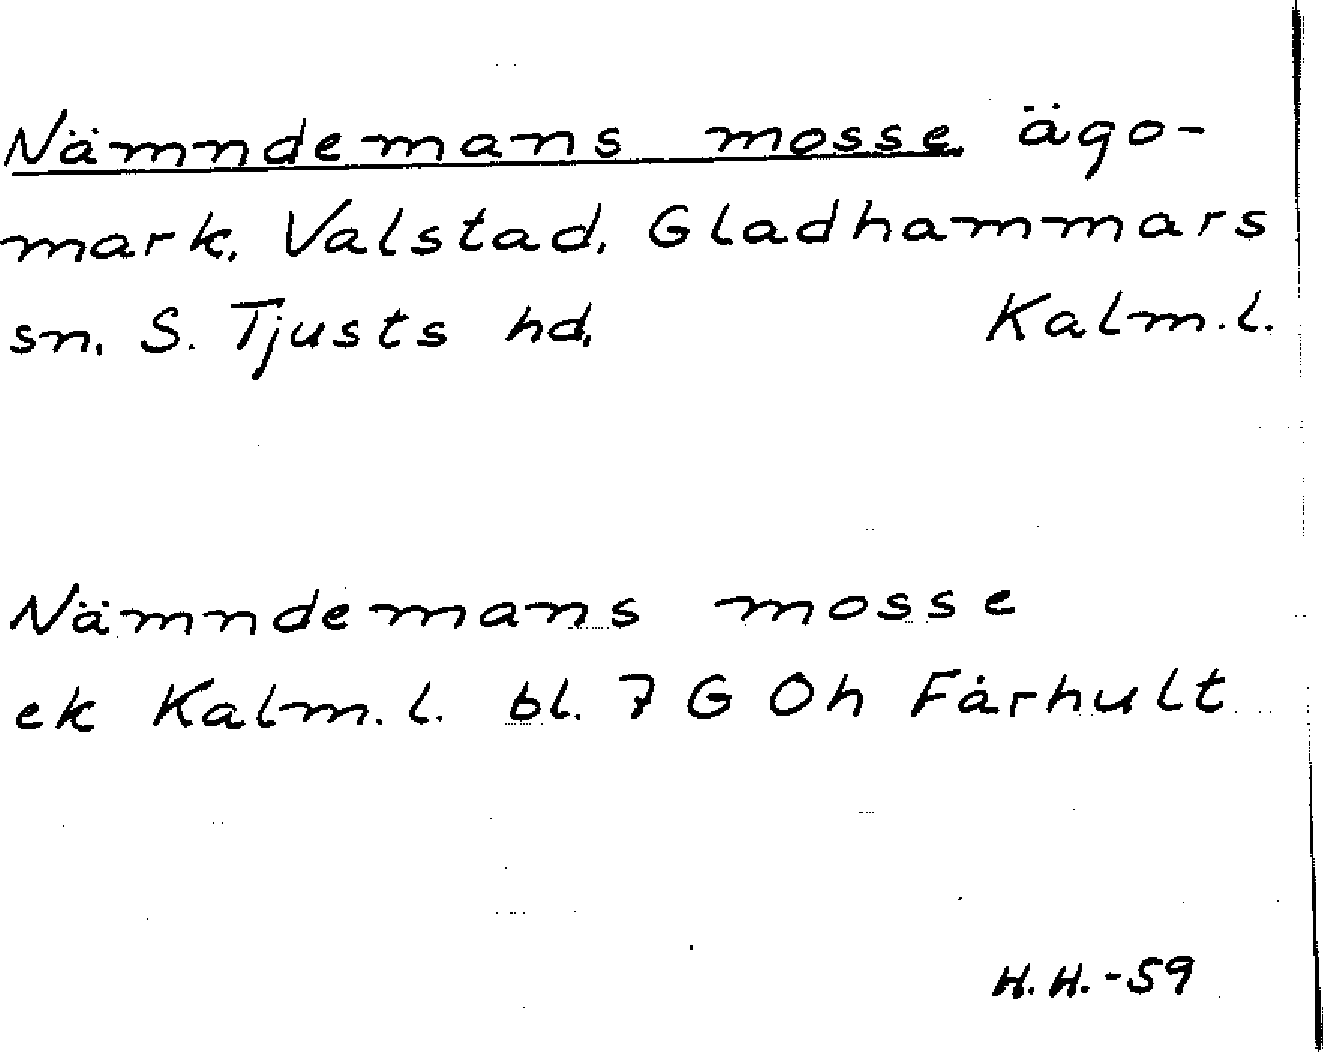 Nämndemans mosse, ägo-
mark, Valstad, Gladhammars
sn, S. Tjusts hd, Kalm.l.
Nämndemans mosse
ek Kalm.l. bl. 7 G Oh Fårhult
H.H.-59